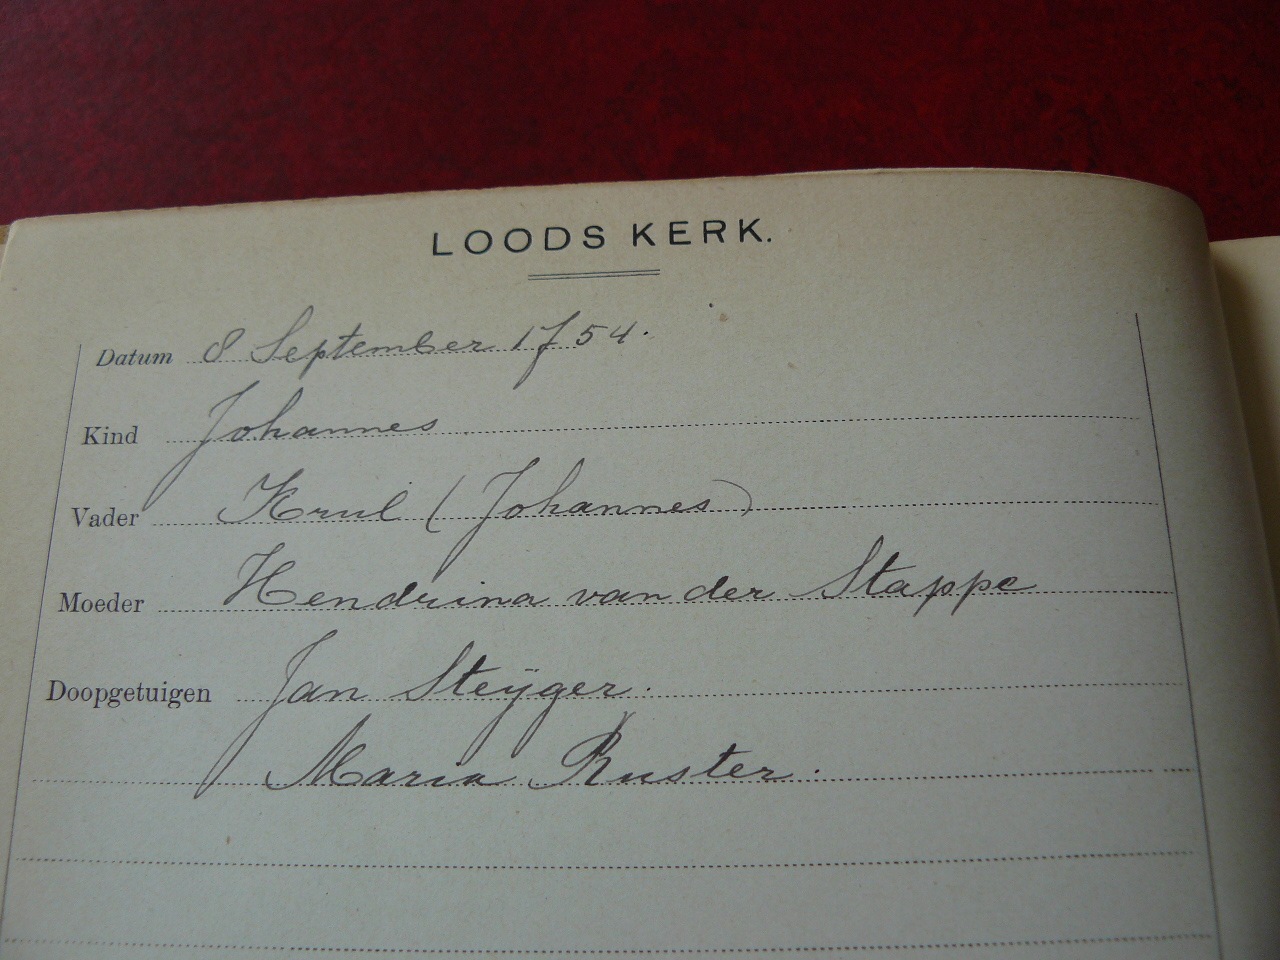 LOODS KERK.
Datum 8 September 1754.
Kind Johannes
Vader Krul (Johannes)
Moeder Hendrina van der Stappe
Doopgetuigen Jan Steÿger.
Maria Ruster.